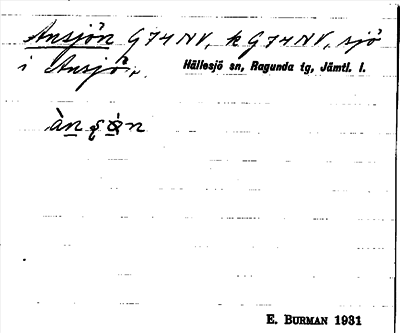 Ansjön G74NV, k G74NV, sjö
i Ansjö.
Hällesjö sn, Ragunda tg, Jämtl. l.
E. BURMAN 1931